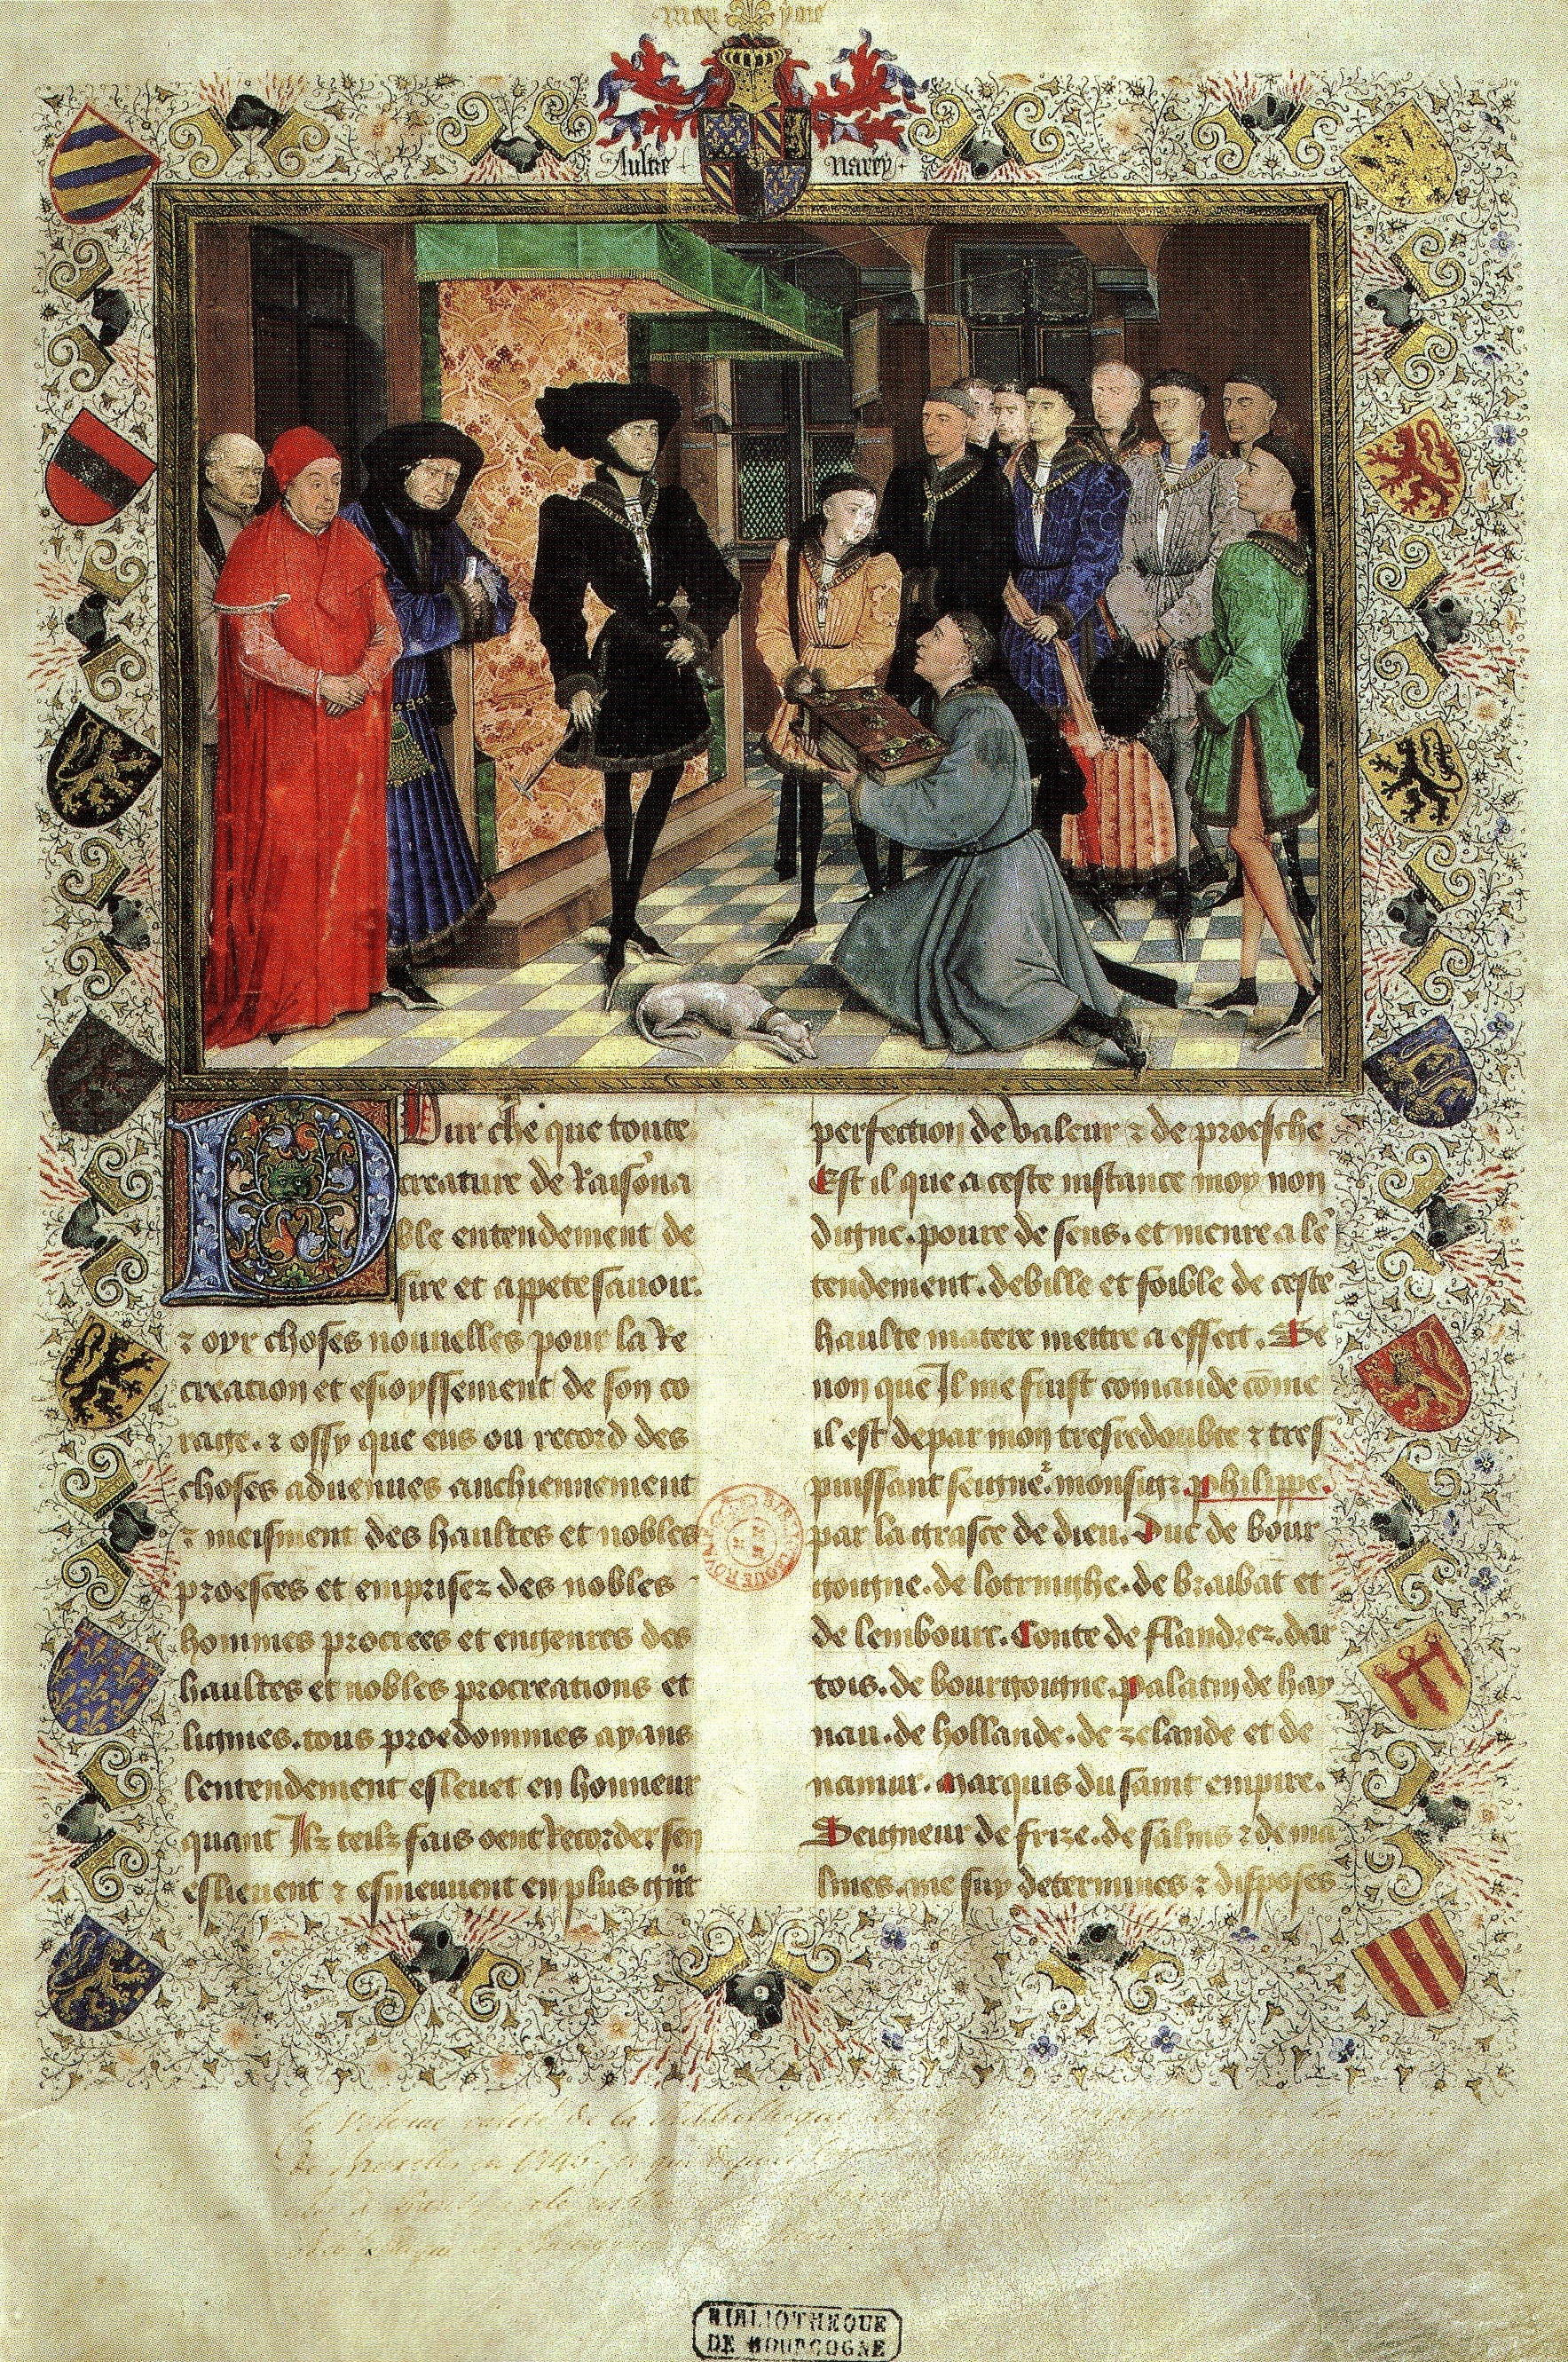 Mon joie
Aultre narey
Pur che que toute
creature de Raison a
ble entendement de
sire et appete sauoir.
⁊ oyr choses nouuelles pour la Re
creation et esioyssement de son co
rage. ⁊ ossy que ens ou record des
choses aduenues anchiennement
⁊ meisment des haultes et nobles
proesces et emprisez des nobles
hommes procrees et engenres des
haultes et nobles procreations et
lignies. tous proedommes ayans
lentendement esleuet en honneur
quant Ilz teilz fais oent Recorder. sen
eslieuent ⁊ esmeuuent en plus gñt
perfection de valeur ⁊ de proesche
Est il que a ceste instance moy non
digne. poure de sens. et menre a lē
tendement. debille et foible de ceste
haulte matere mettre a effect. Se
non que Il me fuist comande cōme
il est de par mon tresredoubte ⁊ tres
puissant seigneᷣ. monsigᷣ philippe.
par la grasce de dieu. Duc de bour
gongne. de lotringhe. de braibāt et
de lembourc. Conte de flandrez. dar
tois. de bourgongne. palatin de hay
nau. de hollande. de zelande et de
namur. Marquis du saint empire.
Seigneur de frize. de salins ⁊ de ma
lines. me suy determines ⁊ disposes
BIBLIOTHEQUE
DE BOURGOGNE